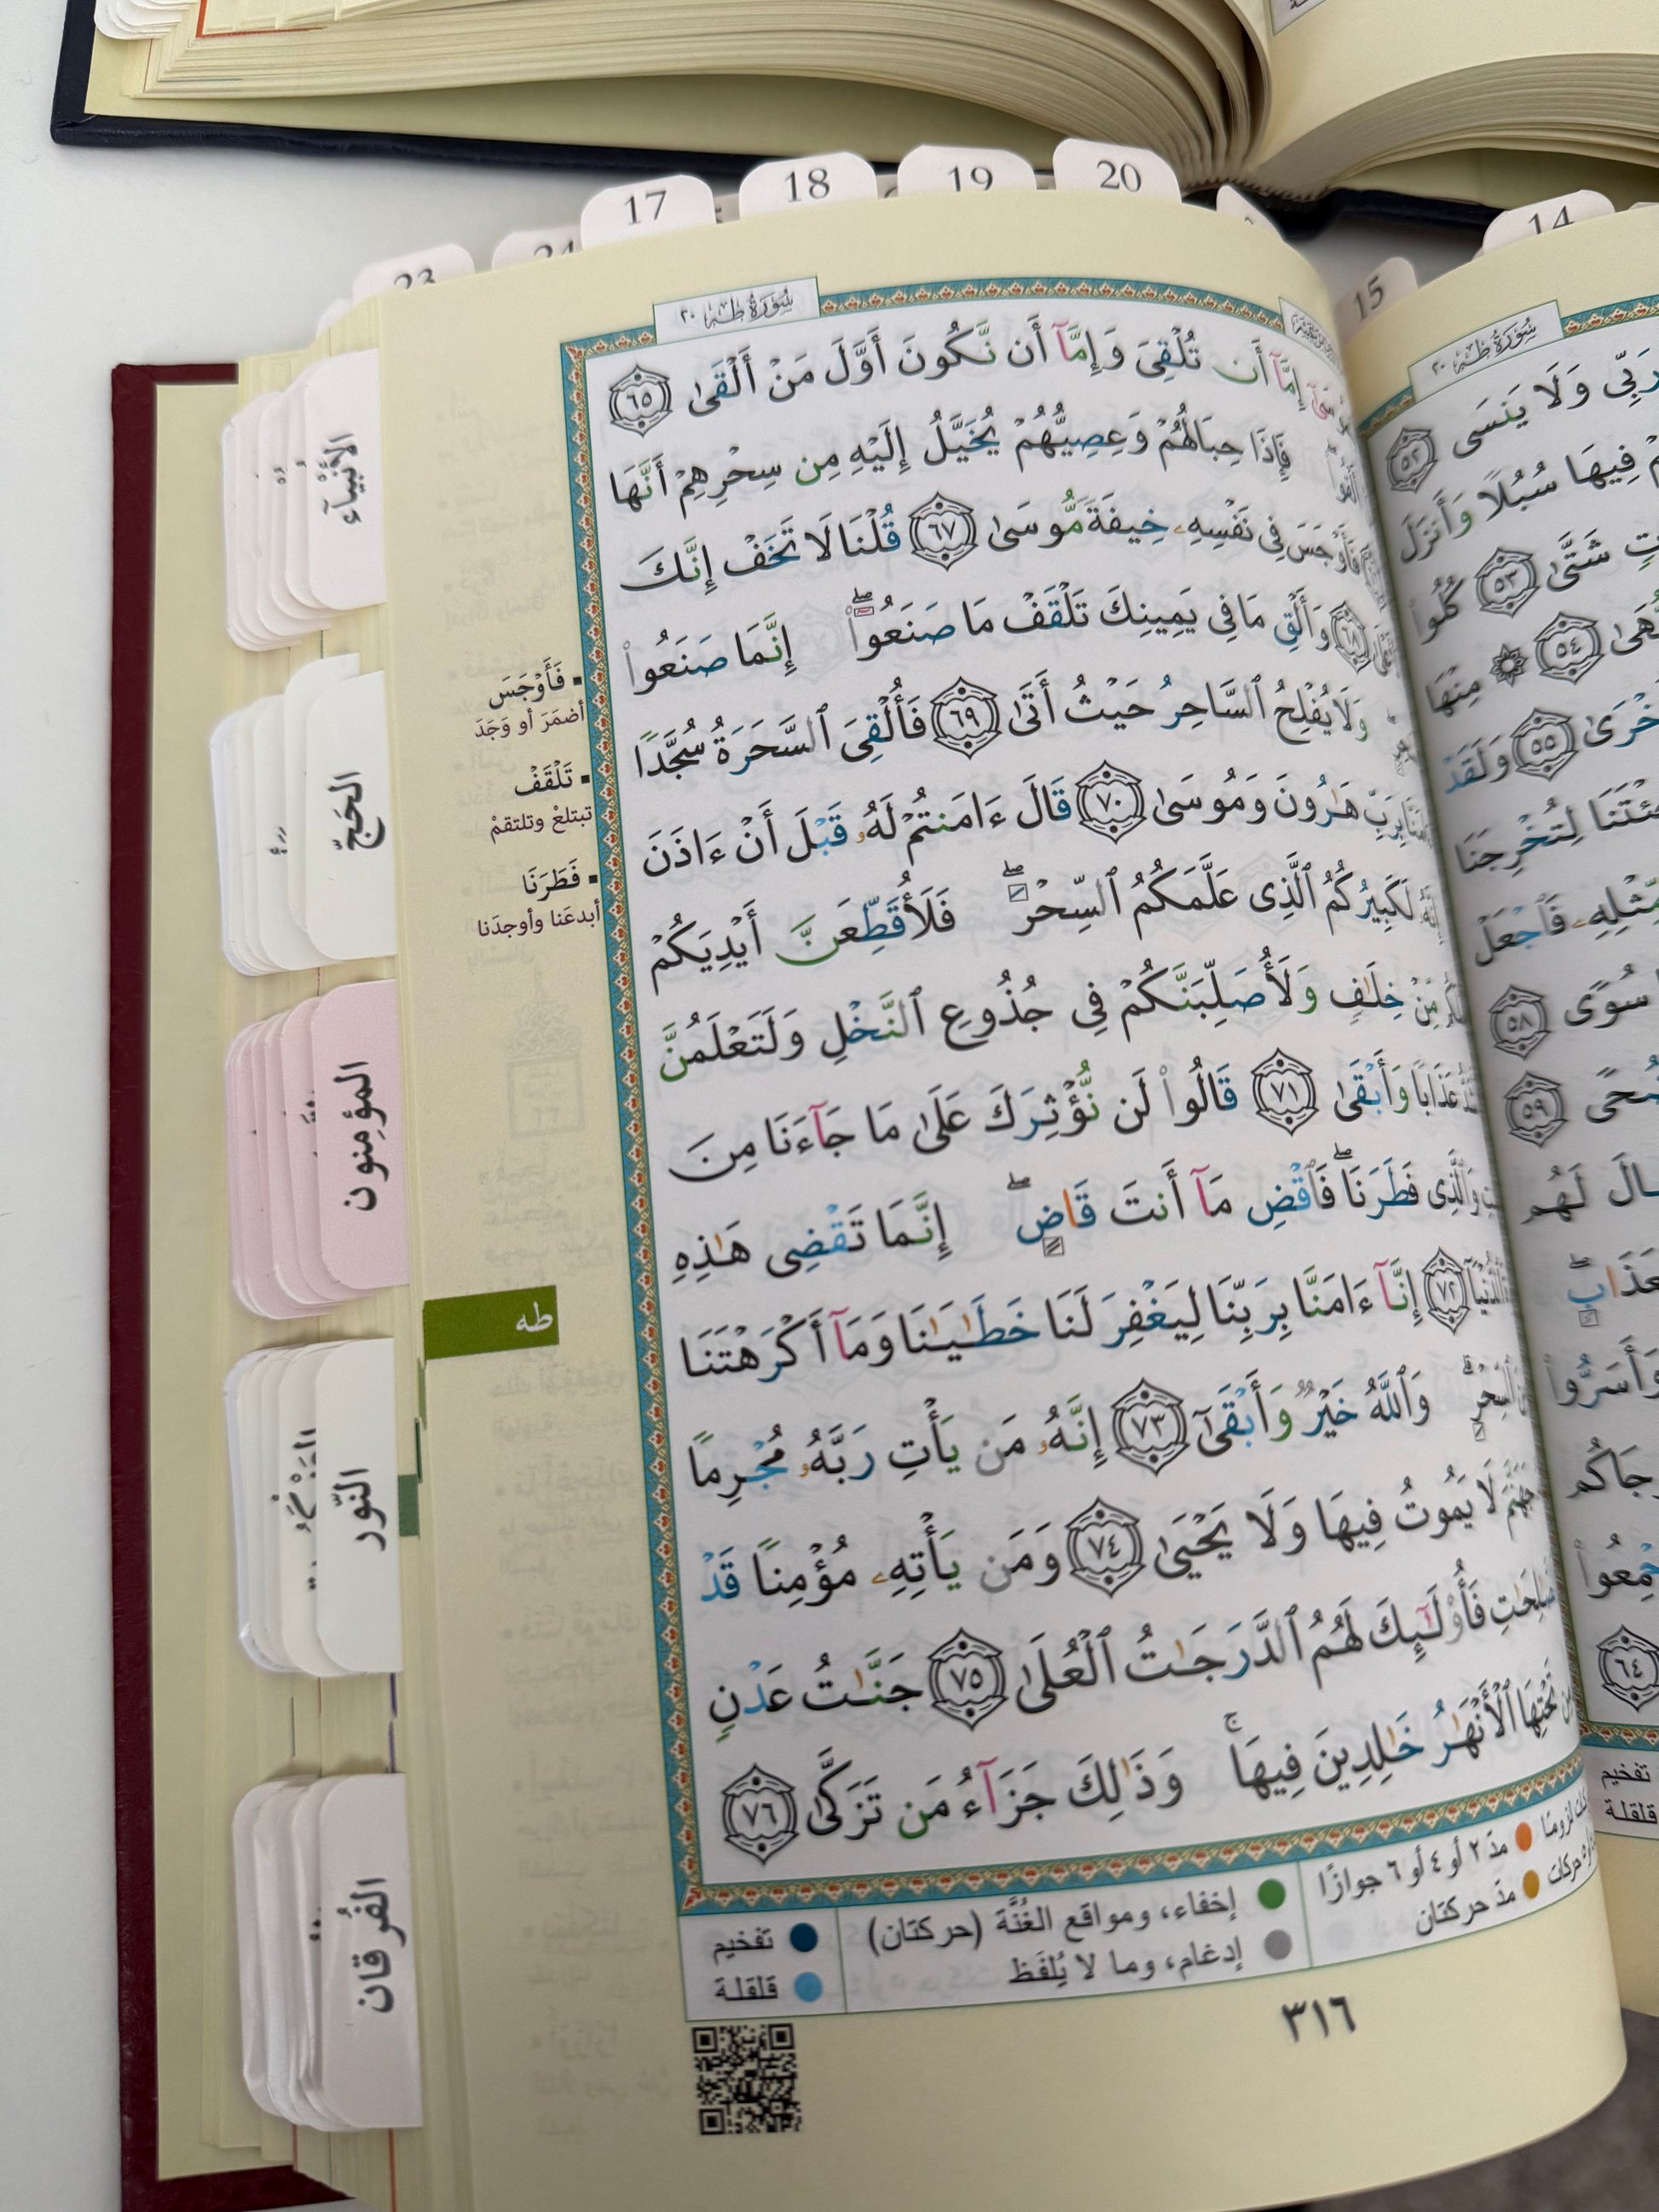 17
18
19
20
23
24
14
15
سُورَةُ طه ٢٠
إِمَّآ أَن تُلْقِىَ وَإِمَّآ أَن نَّكُونَ أَوَّلَ مَنْ أَلْقَىٰ ٦٥
فَإِذَا حِبَالُهُمْ وَعِصِيُّهُمْ يُخَيَّلُ إِلَيْهِ مِن سِحْرِهِمْ أَنَّهَا
فَأَوْجَسَ فِى نَفْسِهِۦ خِيفَةً مُّوسَىٰ ٦٧ قُلْنَا لَا تَخَفْ إِنَّكَ
٦٨ وَأَلْقِ مَا فِى يَمِينِكَ تَلْقَفْ مَا صَنَعُوٓا۟ ۖ إِنَّمَا صَنَعُوا۟
وَلَا يُفْلِحُ ٱلسَّاحِرُ حَيْثُ أَتَىٰ ٦٩ فَأُلْقِىَ ٱلسَّحَرَةُ سُجَّدًا
بِرَبِّ هَـٰرُونَ وَمُوسَىٰ ٧٠ قَالَ ءَامَنتُمْ لَهُۥ قَبْلَ أَنْ ءَاذَنَ
لَكَبِيرُكُمُ ٱلَّذِى عَلَّمَكُمُ ٱلسِّحْرَ ۖ فَلَأُقَطِّعَنَّ أَيْدِيَكُمْ
مِّنْ خِلَـٰفٍ وَلَأُصَلِّبَنَّكُمْ فِى جُذُوعِ ٱلنَّخْلِ وَلَتَعْلَمُنَّ
عَذَابًا وَأَبْقَىٰ ٧١ قَالُوا۟ لَن نُّؤْثِرَكَ عَلَىٰ مَا جَآءَنَا مِنَ
وَٱلَّذِى فَطَرَنَا ۖ فَٱقْضِ مَآ أَنتَ قَاضٍ ۖ إِنَّمَا تَقْضِى هَـٰذِهِ
ٱلدُّنْيَآ ٧٢ إِنَّآ ءَامَنَّا بِرَبِّنَا لِيَغْفِرَ لَنَا خَطَـٰيَـٰنَا وَمَآ أَكْرَهْتَنَا
ٱلسِّحْرِ ۗ وَٱللَّهُ خَيْرٌ وَأَبْقَىٰٓ ٧٣ إِنَّهُۥ مَن يَأْتِ رَبَّهُۥ مُجْرِمًا
جَهَنَّمَ لَا يَمُوتُ فِيهَا وَلَا يَحْيَىٰ ٧٤ وَمَن يَأْتِهِۦ مُؤْمِنًا قَدْ
فَأُو۟لَـٰٓئِكَ لَهُمُ ٱلدَّرَجَـٰتُ ٱلْعُلَىٰ ٧٥ جَنَّـٰتُ عَدْنٍ
تَحْتِهَا ٱلْأَنْهَـٰرُ خَـٰلِدِينَ فِيهَا ۚ وَذَٰلِكَ جَزَآءُ مَن تَزَكَّىٰ ٧٦
فَأَوْجَسَ
أضمَرَ أو وَجَدَ
تَلْقَفْ
تبتلعْ وتلتقمْ
فَطَرَنَا
أبدعَنا وأوجدَنا
طه
الأنبيَآء
الحَجّ
المؤمنون
النّور
الفُرقان
مدّ ٢ أو ٤ أو ٦ جوازًا
مدّ حركتان
إخفاء، ومواقع الغُنَّة (حركتان)
إدغام، وما لا يُلفَظ
تفخيم
قلقلة
٣١٦
سُورَةُ طه ٢٠
رَبِّى وَلَا يَنسَى ٥٢
فِيهَا سُبُلًا وَأَنزَلَ
شَتَّىٰ ٥٣ كُلُوا۟
٥٤ مِنْهَا
٥٥ وَلَقَدْ
لِتُخْرِجَنَا
فَٱجْعَلْ
سُوًى ٥٨
٥٩
لَهُم
وَأَسَرُّوا۟
٦٤
تفخيم
قلقلة